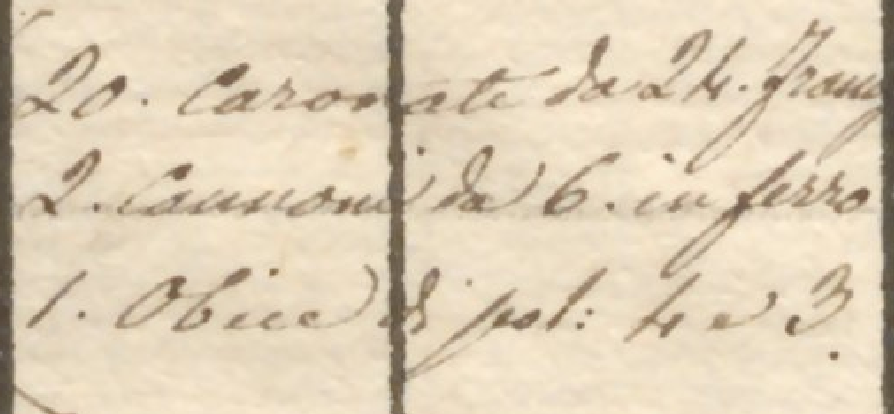 20. Caronate da 24. Franc
2. Cannoni da 6. in ferro
1. Obice di pol: 4 e 3.